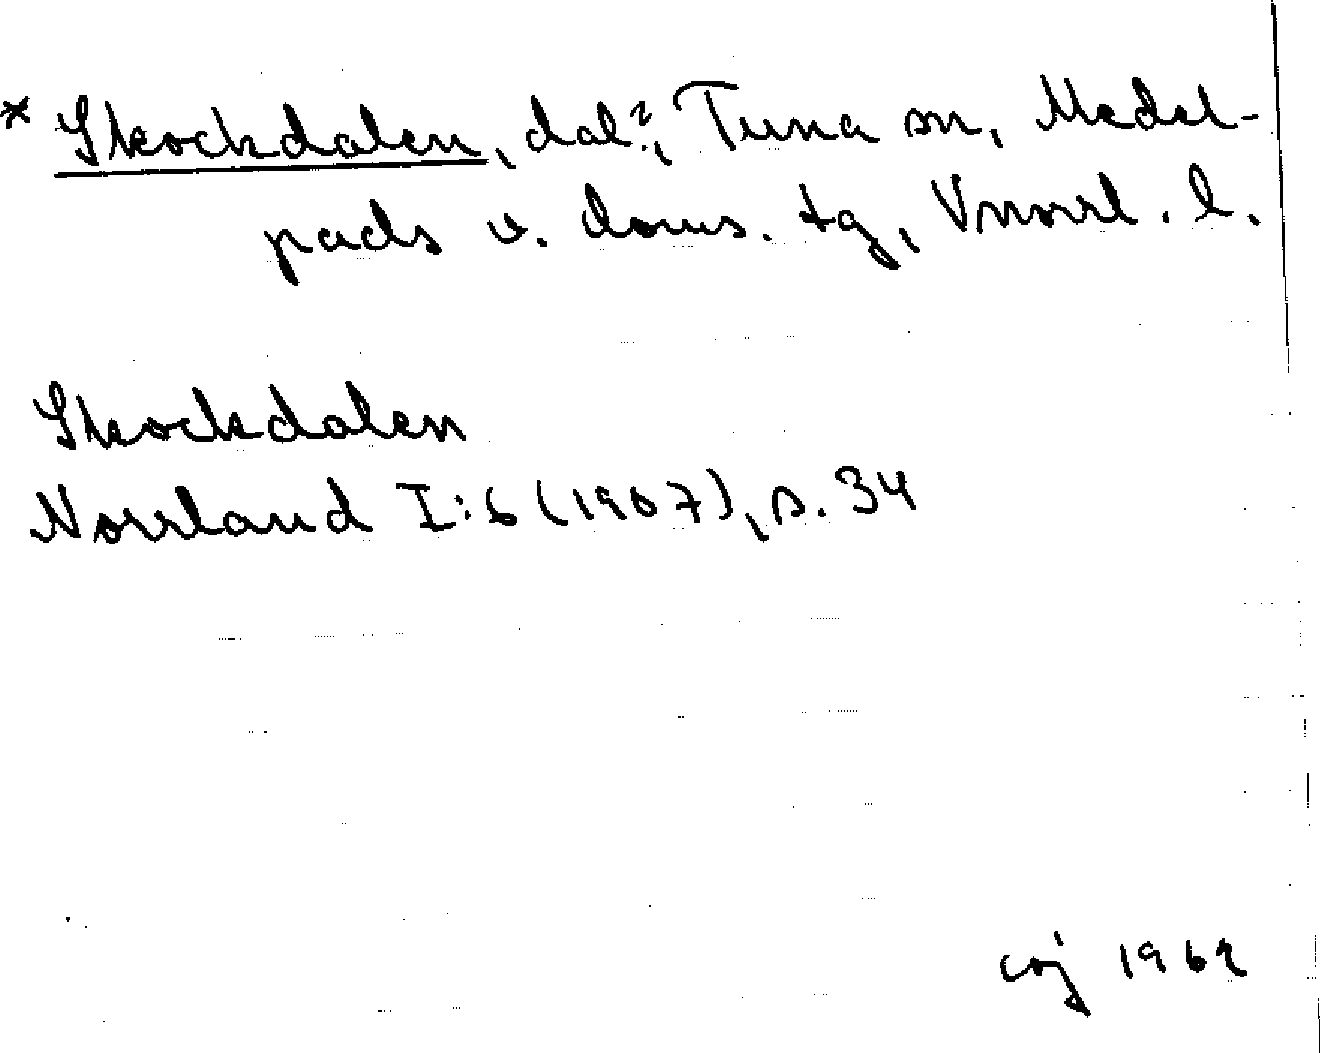 * Skockdalen, dal?, Tuna sn, Medel-
pads v. doms. tg, Vnorrl. l.
Skockdalen
Norrland I:6 (1907), s. 34
coj 1962